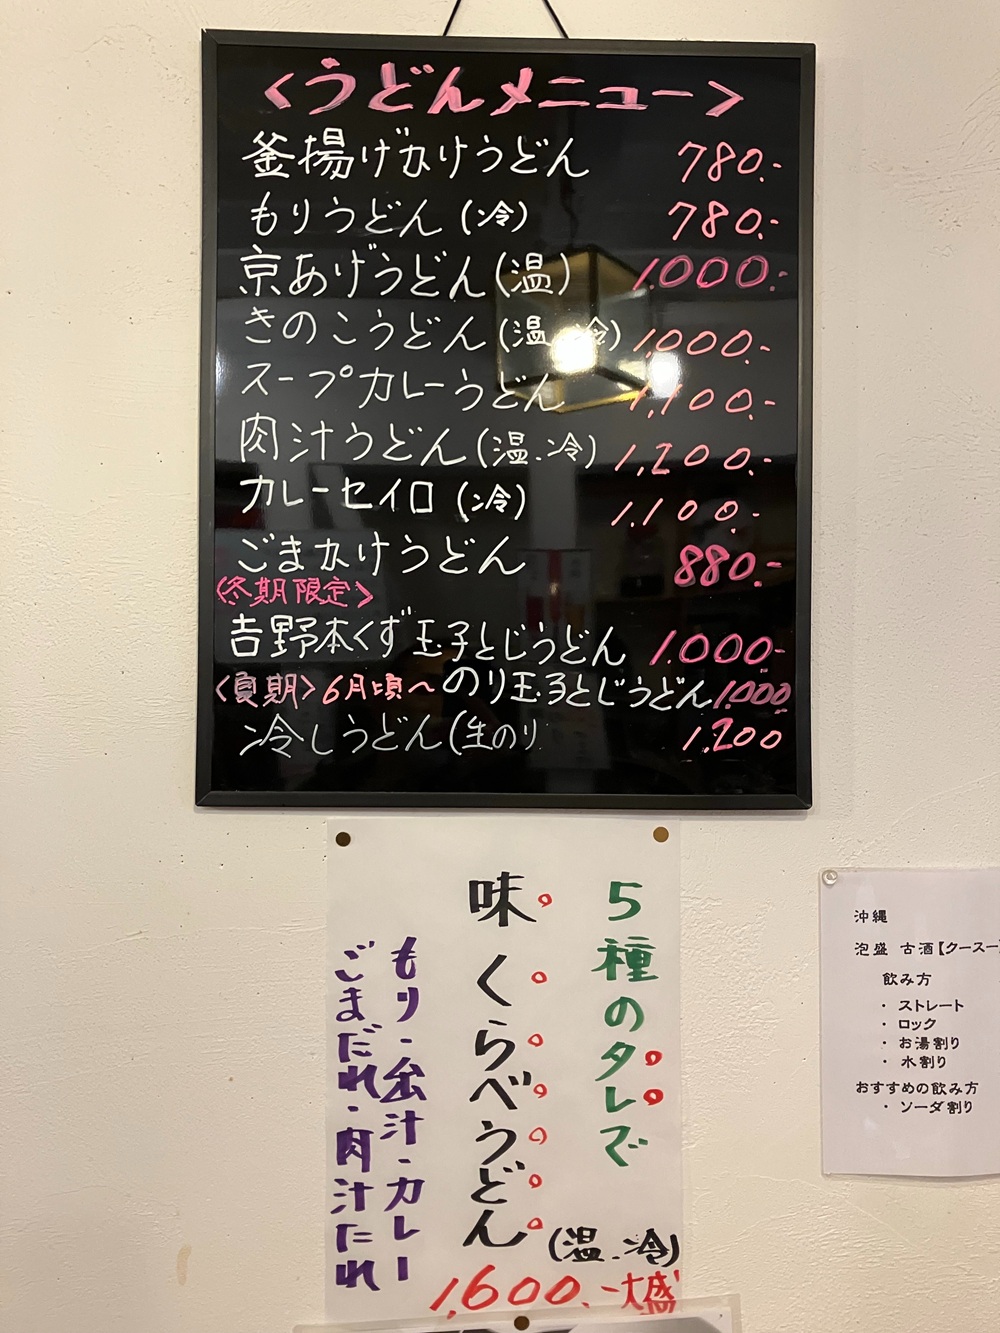 <うどんメニュー>
釜揚げかけうどん 780.-
もりうどん (冷) 780.-
京あげうどん(温) 1.000.-
きのこうどん (温.冷) 1,000.-
スープカレーうどん 1,100.-
肉汁うどん(温.冷) 1,200.-
カレーセイロ (冷) 1.100.-
ごまかけうどん 880.-
<冬期限定>
吉野本くず玉子とじうどん 1.000-
<夏期>6月頃〜 のり玉子とじうどん 1.000
冷しうどん(生のり 1,200
5種のタレで
味くらべうどん
(温.冷)
1,600.-大盛
もり・釜汁・カレー
ごまだれ・肉汁たれ
沖縄
泡盛 古酒【クースー】
飲み方
・ ストレート
・ ロック
・ お湯割り
・ 水割り
おすすめの飲み方
・ ソーダ割り